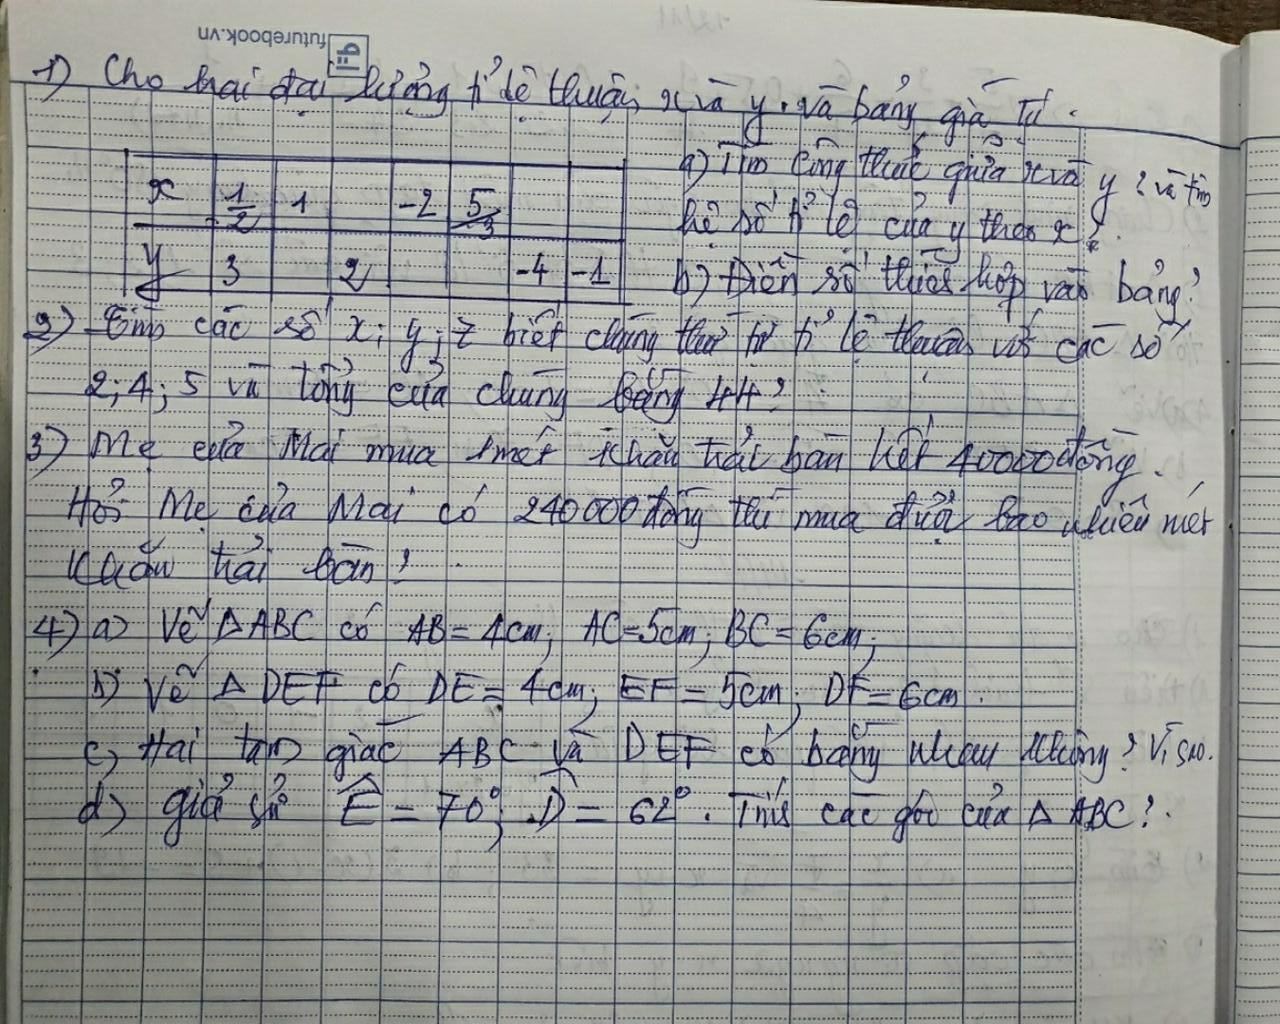 futurebook.vn
1) Cho hai đại lượng tỉ lệ thuận x và y. và bảng giá trị.
x | 1/2 | 1 | | -2 | 5/3 | | 
y | 3 | | 2 | | | -4 | -1
a) Tìm công thức giữa x và y? và tìm
hệ số tỉ lệ của y theo x?
b) Điền số thích hợp vào bảng?
2) Tìm các số x; y; z biết chúng thứ tự tỉ lệ thuận với các số
2; 4; 5 và tổng của chúng bằng 44?
3) Mẹ của Mai mua 1 mét khăn trải bàn hết 40000 đồng.
Hỏi Mẹ của Mai có 240000 đồng thì mua được bao nhiêu mét
khăn trải bàn?
4) a) Vẽ Δ ABC có AB = 4cm; AC = 5cm; BC = 6cm;
b) Vẽ Δ DEF có DE = 4cm; EF = 5cm; DF = 6cm.
c) Hai tam giác ABC và DEF có bằng nhau không? Vì sao.
d) giả sử Ê = 70°; D̂ = 62°. Tính các góc của Δ ABC?.